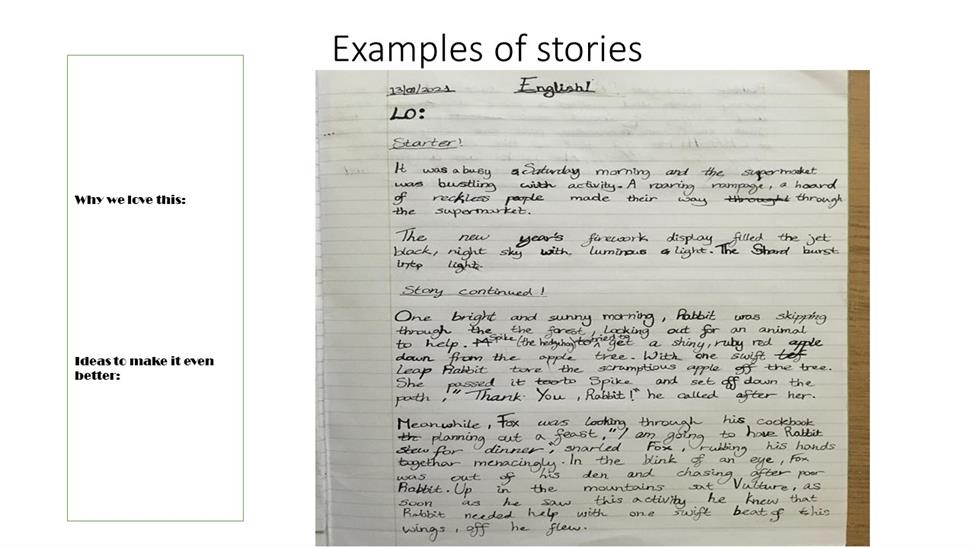 Examples of stories
Why we love this:
Ideas to make it even
better:
13/09/2021 English!
LO:
Starter!
It was a busy Saturday morning and the supermarket
was bustling with activity. A roaring rampage, a hoard
of reckless people made their way throught through
the supermarket.
The new year's firework display filled the jet
black, night sky with luminous light. The Shard burst
into light.
Story continued!
One bright and sunny morning, Rabbit was skipping
through the the forest, looking out for an animal
to help. Spike (the hedgehog) tried to get a shiny, ruby red apple
down from the apple tree. With one swift
leap Rabbit tore the scrumptious apple off the tree.
She passed it too to Spike and set off down the
path, "Thank You, Rabbit!" he called after her.
Meanwhile, Fox was looking through his cookbook
th planning out a feast, "I am going to have Rabbit
stew for dinner", snarled Fox, rubbing his hands
together menacingly. In the blink of an eye, Fox
was out of his den and chasing after poor
Rabbit. Up in the mountains sat Vulture, as
soon as he saw this activity he knew that
Rabbit needed help with one swift beat of his
wings, off he flew.